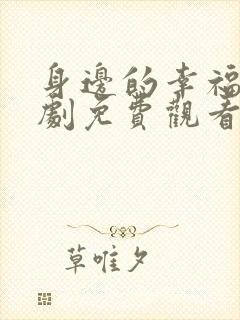 身邊的幸福
劇免費觀看
草唯夕